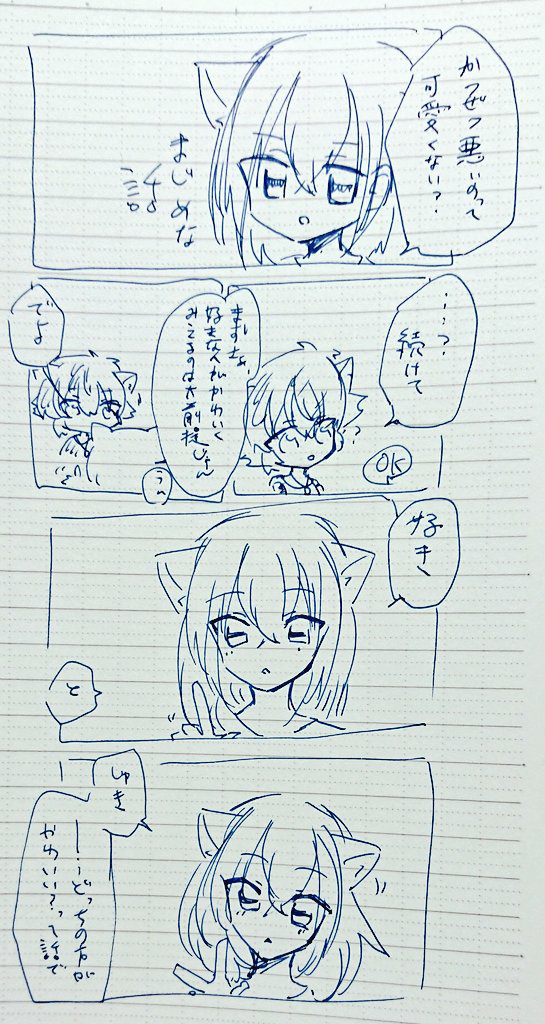 かつぜつ悪いのって
可愛くない？
まじめな
話
…？
続けて
OK
まずさ、
好きな人がかわいく
みえるのは大前提じゃん
うん
でよ
好き
と
しゅき
……どっちの方が
かわいい？って話で